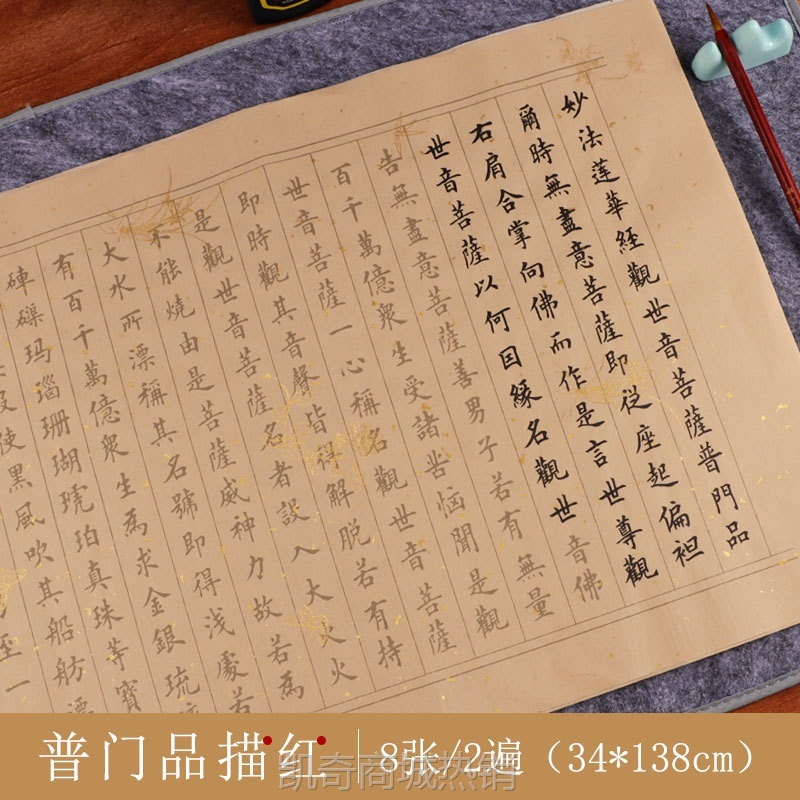 妙法蓮華經觀世音菩薩普門品
爾時無盡意菩薩即從座起偏袒
右肩合掌向佛而作是言世尊觀
世音菩薩以何因緣名觀世音佛
告無盡意菩薩善男子若有無量
百千萬億衆生受諸苦惱聞是觀
世音菩薩一心稱名觀世音菩薩
即時觀其音聲皆得解脫若有持
是觀世音菩薩名者設入大火火
不能燒由是菩薩威神力故若為
大水所漂稱其名號即得淺處若
有百千萬億衆生為求金銀琉
硨磲玛瑙珊瑚琥珀真珠等寶
使黑風吹其船舫漂
至一
普门品描红 8张/2遍（34*138cm）
凯奇商城热销